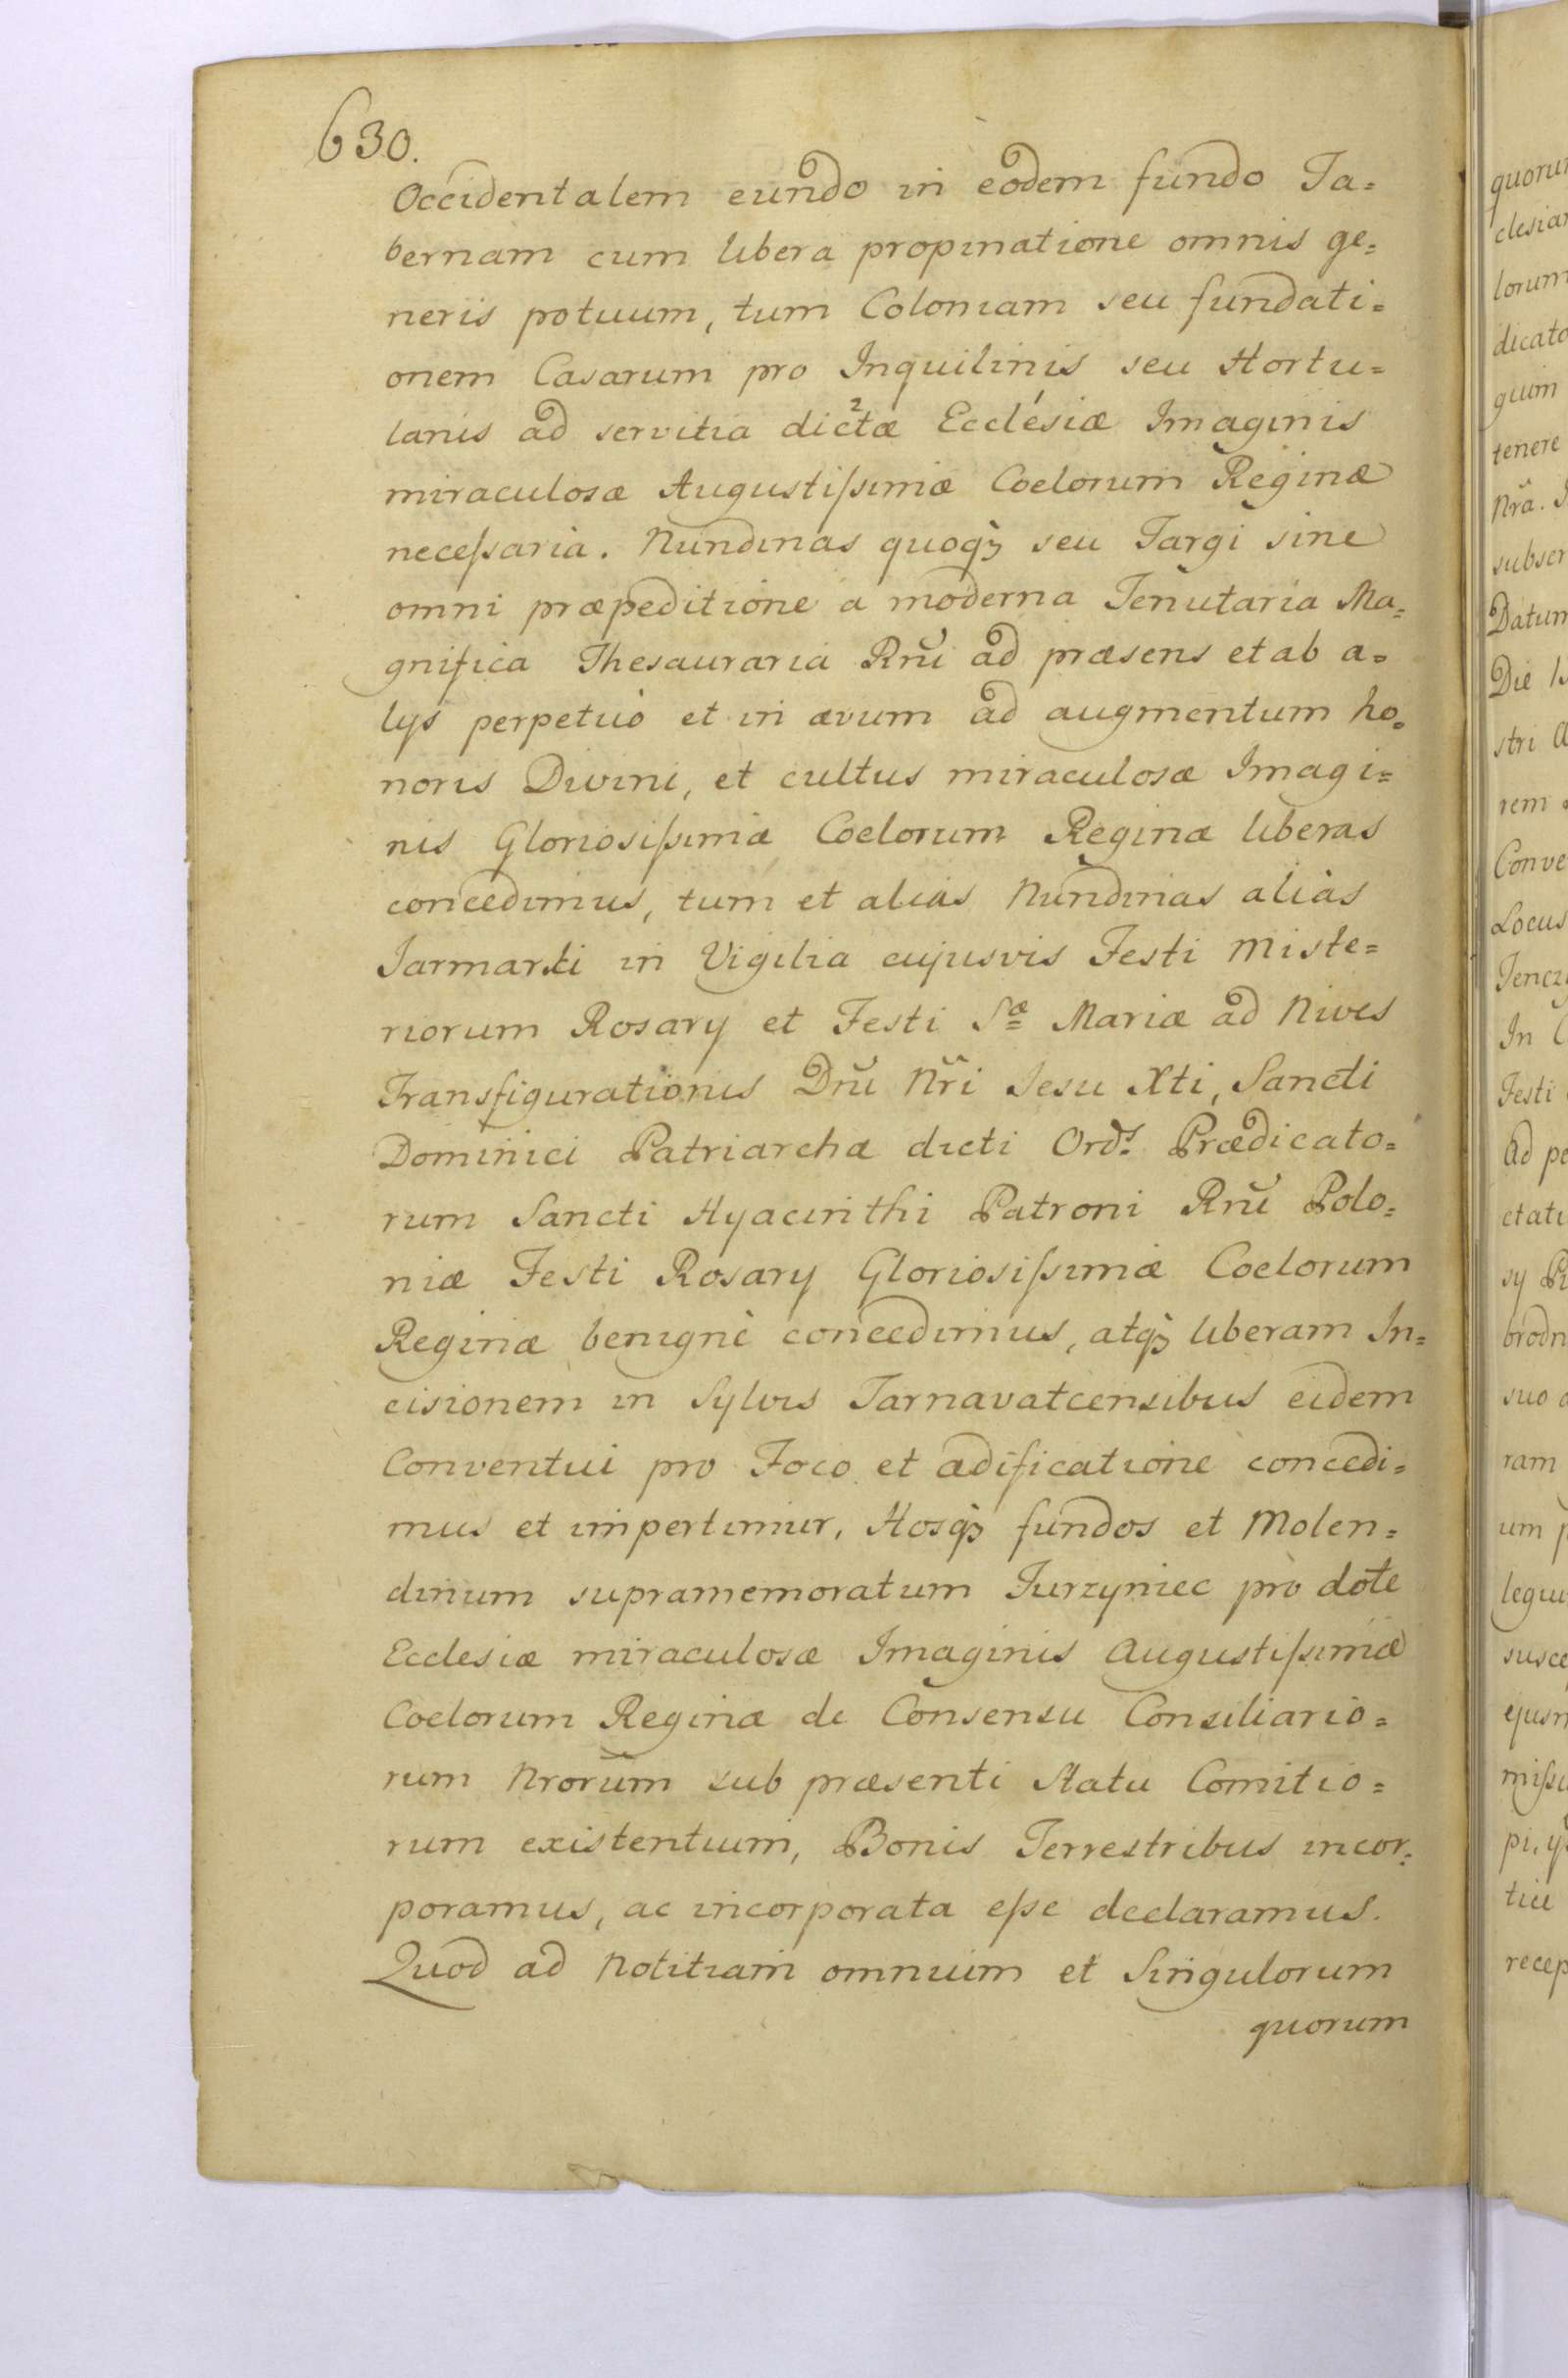 630.
Occidentalem eundo in eodem fundo Ta=
bernam cum libera propinatione omnis ge=
neris potuum, tum Coloniam seu fundati=
onem Casarum pro Inquilinis seu Hortu=
lanis ad servitia dictæ Ecclesiæ Imaginis
miraculosæ Augustiſsimæ Coelorum Reginæ
neceſsaria. Nundinas quoqȝ seu Targi sine
omni præpeditione a moderna Tenutaria Ma=
gnifica Thesauraria Rnĩ ad præsens et ab a=
lijs perpetuò et in ævum ad augmentum ho=
noris Divini, et cultus miraculosæ Imagi=
nis Gloriosiſsimæ Coelorum Reginæ liberas
concedimus, tum et alias Nundinas aliàs
Jarmarki in Vigilia cujusvis Festi Miste=
riorum Rosary et Festi Sæ Mariæ ad Nives
Transfigurationis Dnĩ Nr̃i Jesu Xti, Sancti
Dominici Patriarchæ dicti Ords. Prædicato=
rum Sancti Hyacinthi Patroni Rnĩ Polo=
niæ Festi Rosary Gloriosiſsimæ Coelorum
Reginæ benignè concedimus, atqȝ liberam In=
cisionem in Sylvis Tarnavatcensibus eidem
Conventui pro Foco et ædificatione concedi=
mus et impertimur, Hosqȝ fundos et Molen=
dinum supramemoratum Jurzyniec pro dote
Ecclesiæ miraculosæ Imaginis Augustiſsimæ
Coelorum Reginæ de Consensu Consiliario=
rum Nrorũm sub præsenti Statu Comitio=
rum existentium, Bonis Terrestribus incor=
poramus, ac incorporata eſse declaramus.
Quod ad Notitiam omnium et Singulorum
quorum